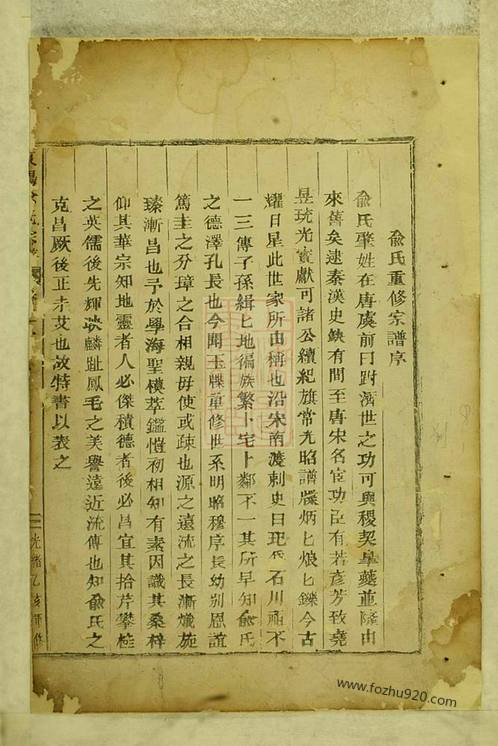 俞氏重修宗譜序
俞氏肇姓在唐虞前曰跗濟世之功可與稷契皋夔並隆由
來舊矣逮秦漢史缺有間至唐宋名宦功臣有若彥芳致堯
昱琉光實獻可諸公續紀旗常尤昭譜牒炳匕烺匕鑠今古
耀日星此世家所由稱也沿宋南渡刺史曰玘氏石川祖不
一三傳子孫緝匕地徧族繁卜宅卜鄰不一其所早知俞氏
之德澤孔長也今開玉牒單修世系明昭穆序長幼別恩誼
篤圭之分璋之合相親毋使或疎也源之遠流之長漸熾旋
臻漸昌也予於學海聖樓萃鑑愷初相知有素因識其桑梓
仰其華宗知地靈者人必傑積德者後必昌宜其拾芹攀桂
之英儒後先輝映麟趾鳳毛之美譽遠近流傳也知俞氏之
克昌厥後正未艾也故特書以表之
光緒乙亥重修
www.fozhu920.com